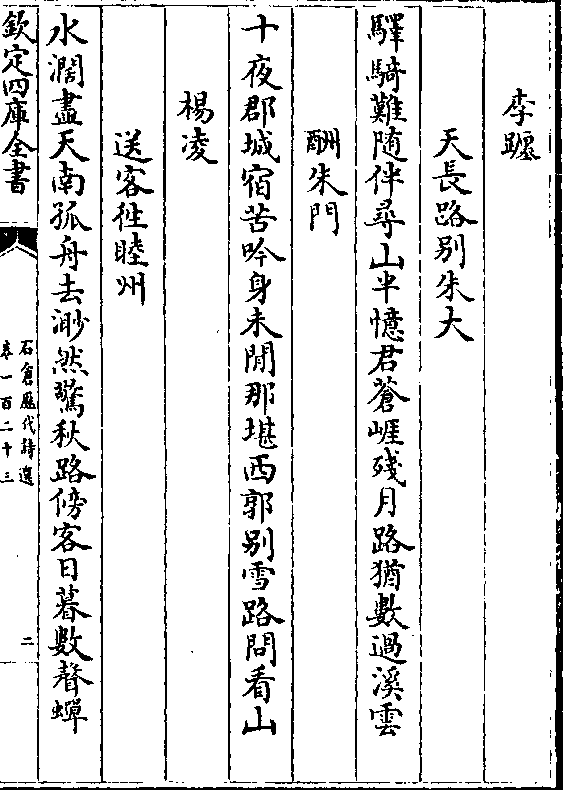 李躔
天長路别朱大
驛騎難随伴尋山半憶君蒼崕殘月路猶數過溪雲
酬朱門
十夜郡城宿苦吟身未閒那堪西郭别雪路問看山
楊凌
送客徃睦州
水濶盡天南孤舟去渺然驚秋路傍客日暮數聲蟬
欽定四庫全書
石倉歷代詩選
卷一百二十三
二